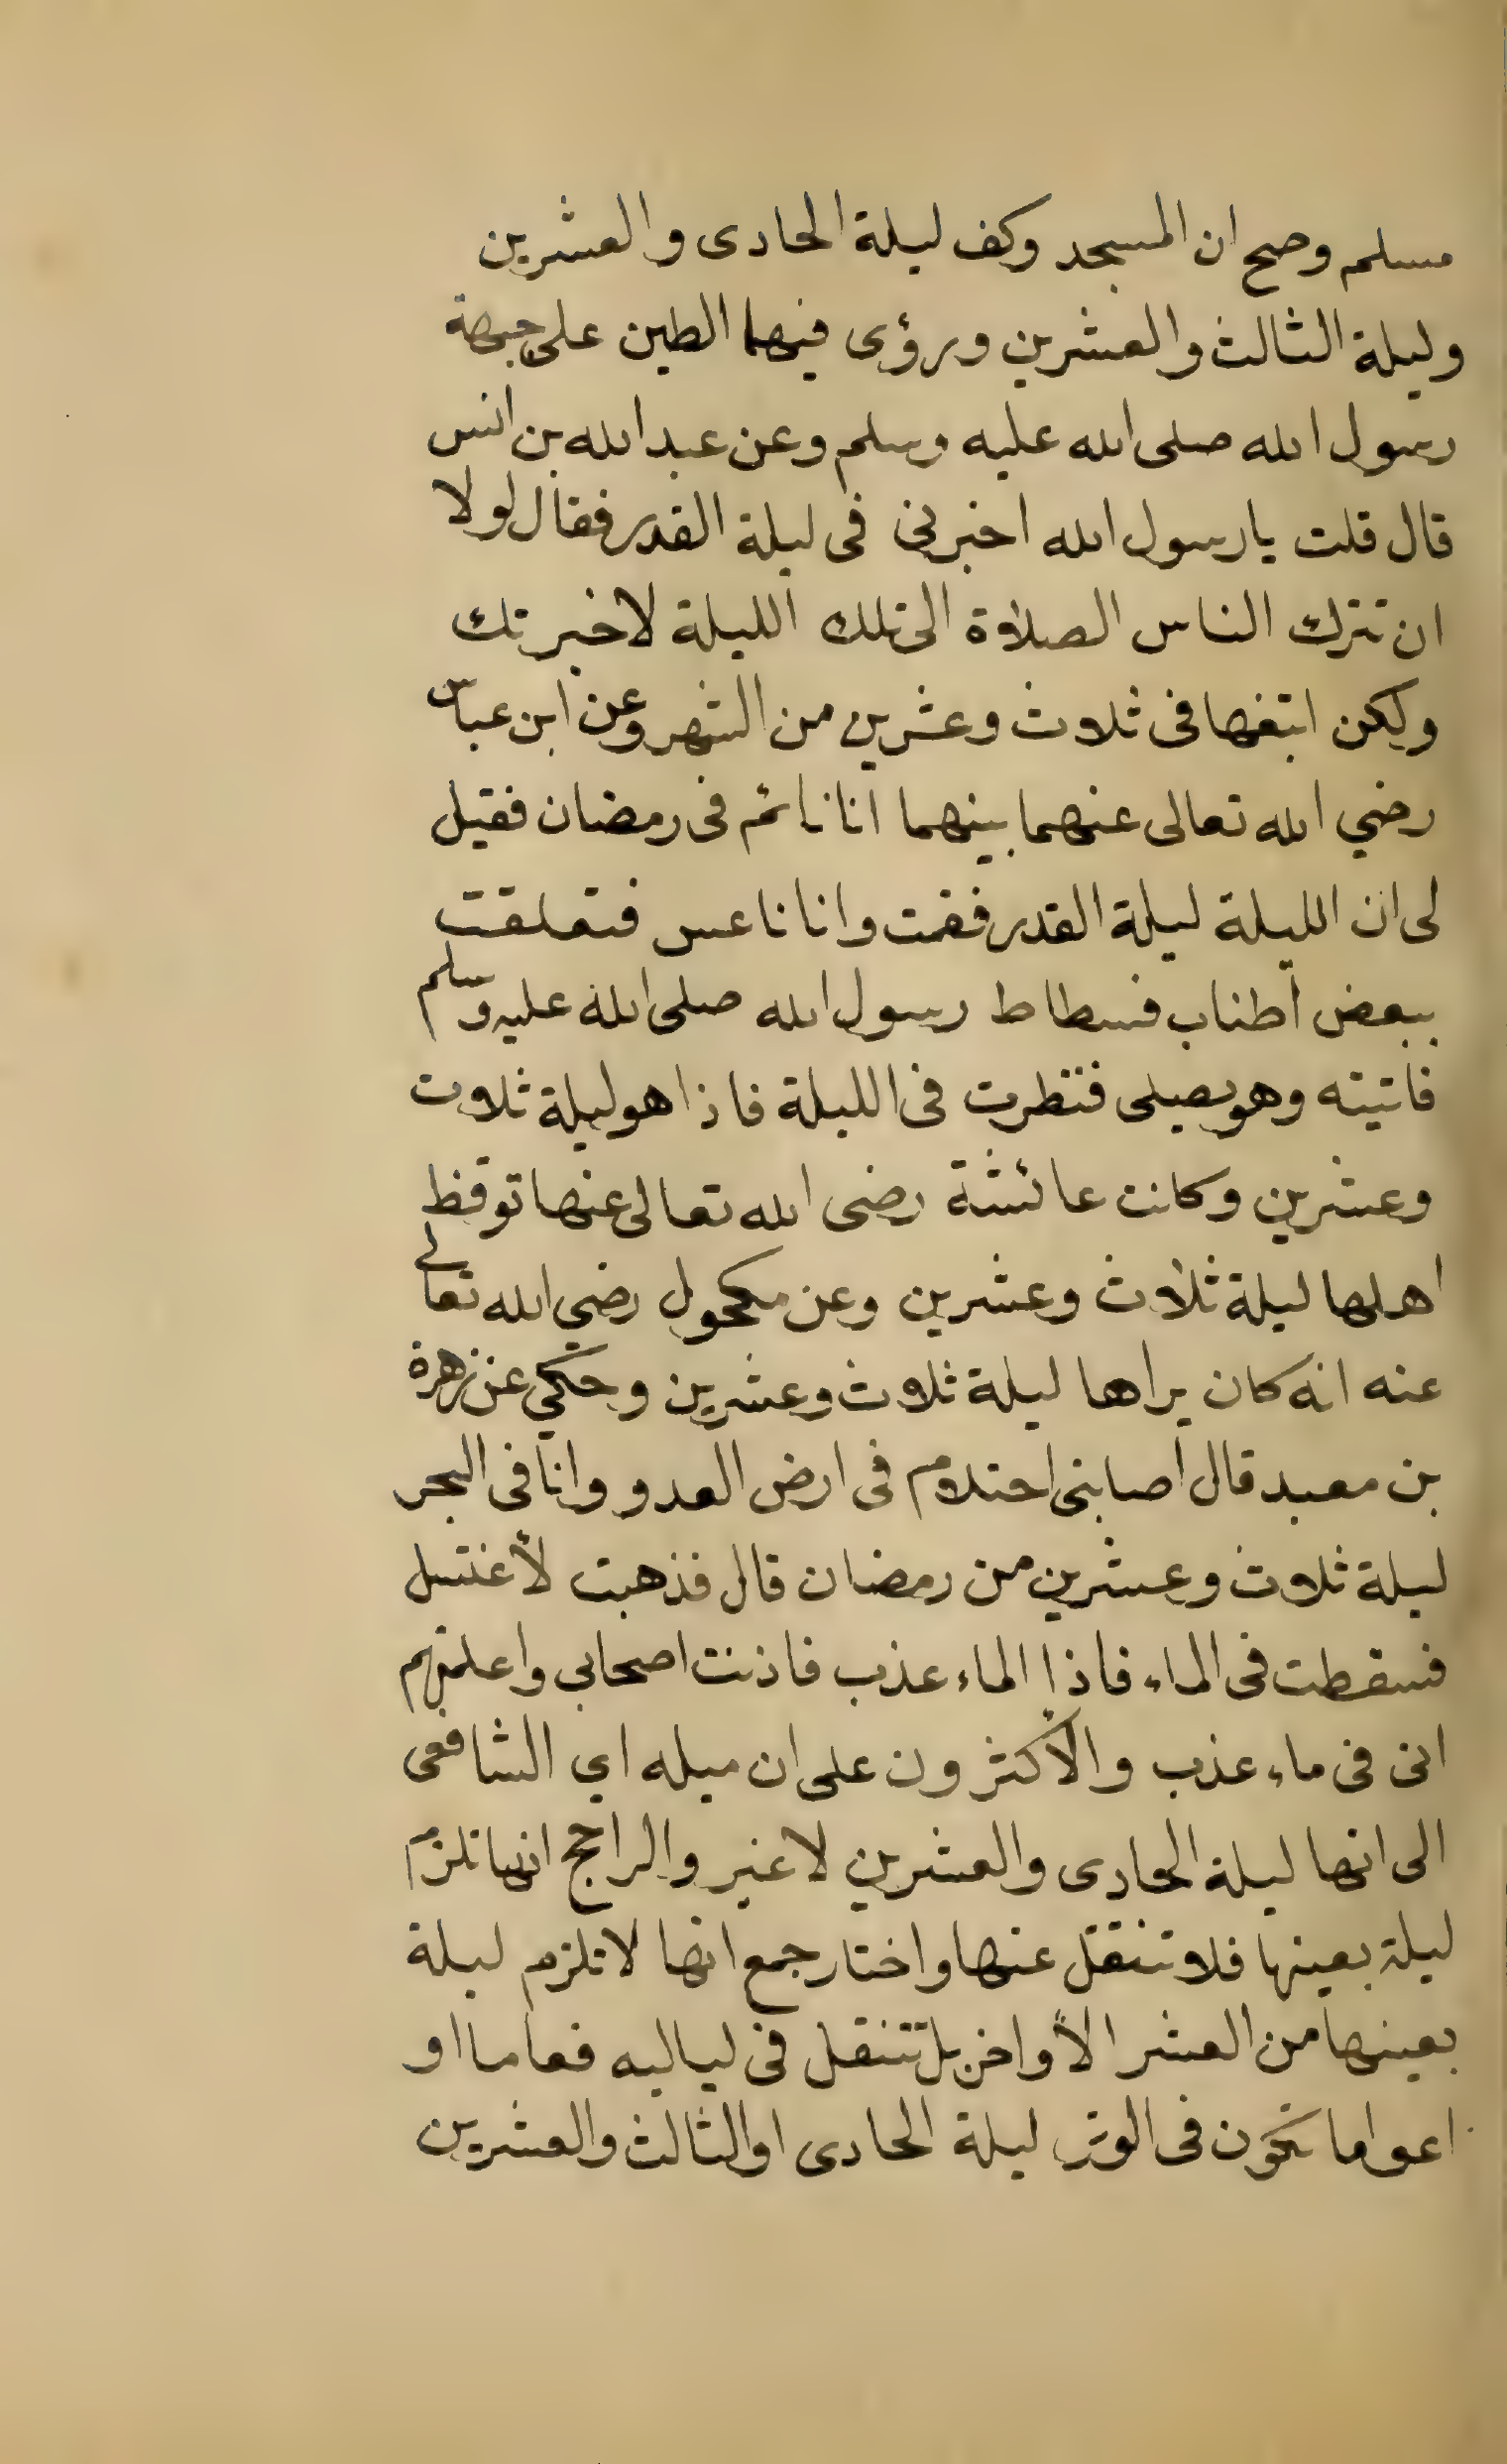 مسلم وصح ان المسجد وكف ليلة الحادى والعشرين
وليلة الثالث والعشرين ورؤى فيهما الطين على جبهة
رسول الله صلى الله عليه وسلم وعن عبد الله بن انس
قال قلت يا رسول الله اخبرنى فى ليلة القدر فقال لولا
ان تترك الناس الصلاة الى تلك الليلة لاخبرتك
ولكن ابتغها فى ثلاث وعشرين من الشهر وعن ابن عباس
رضي الله تعالى عنهما بينهما انا نائم فى رمضان فقيل
لى ان الليلة ليلة القدر فقمت وانا ناعس فتعلقت
ببعض أطناب فسطاط رسول الله صلى الله عليه وسلم
فاتيته وهو يصلى فنظرت فى الليلة فاذا هو ليلة ثلاث
وعشرين وكانت عائشة رضى الله تعالى عنها توقظ
اهلها ليلة ثلاث وعشرين وعن مكحول رضي الله تعالى
عنه انه كان يراها ليلة ثلاث وعشرين وحكي عن زهرة
بن معبد قال أصابنى احتلام فى ارض العدو وانا فى البحر
ليلة ثلاث وعشرين من رمضان قال فذهبت لأغتسل
فسقطت فى الماء فاذا الماء عذب فاذنت اصحابى واعلمتهم
انى فى ماء عذب والأكثرون على ان ميله اي الشافعى
الى انها ليلة الحادى والعشرين لا غير والراجح انها تلزم
ليلة بعينها فلا تنتقل عنها واختار جمع انها لا تلزم ليلة
بعينها من العشر الأواخر بل تنتقل فى لياليه فعاما او
اعواما تكون فى الوتر ليلة الحادى او الثالث والعشرين